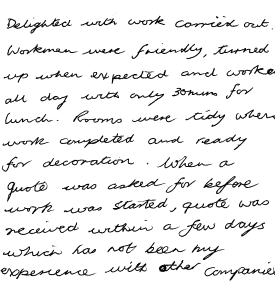 Delighted with work carried out.
Workmen were friendly, turned
up when expected and worke
all day with only 30mins for
lunch. Rooms were tidy when
work completed and ready
for decoration. When a
quote was asked for before
work was started, quote was
received within a few days
which has not been my
experience with other Companie